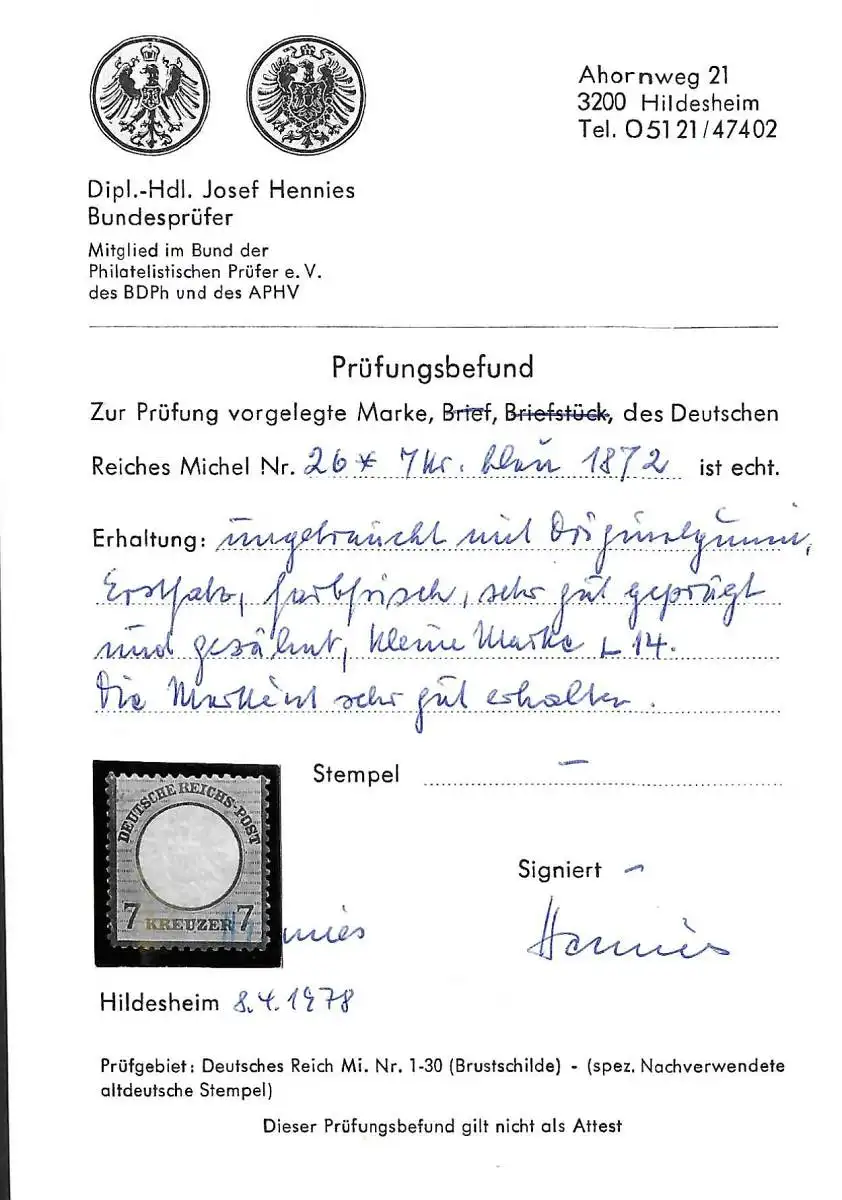 Ahornweg 21
3200 Hildesheim
Tel. 05121/47402
Dipl.-Hdl. Josef Hennies
Bundesprüfer
Mitglied im Bund der
Philatelistischen Prüfer e. V.
des BDPh und des APHV
Prüfungsbefund
Zur Prüfung vorgelegte Marke, Brief, Briefstück, des Deutschen
Reiches Michel Nr. 26 * 7 Kr. blau 1872 ist echt.
Erhaltung: ungebraucht mit Originalgummi,
Erstfalz, farbfrisch, sehr gut geprägt
und gezähnt, kleine Marke L 14.
Die Marke ist sehr gut erhalten.
Stempel –
DEUTSCHE REICHS-POST
7 KREUZER 7
Signiert –
Hennies
Hildesheim 8.4.1978
Prüfgebiet: Deutsches Reich Mi. Nr. 1-30 (Brustschilde) - (spez. Nachverwendete
altdeutsche Stempel)
Dieser Prüfungsbefund gilt nicht als Attest